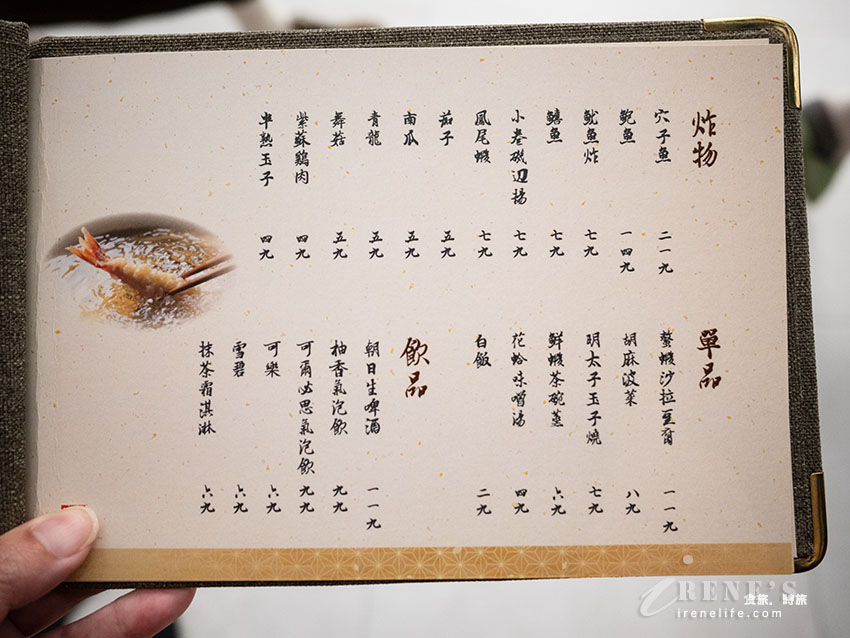 炸物
穴子魚 二一九
鮑魚 一四九
魷魚炸 七九
鱚魚 七九
小卷磯辺揚 七九
鳳尾蝦 七九
茄子 五九
南瓜 五九
青龍 五九
舞菇 五九
紫蘇鷄肉 四九
半熟玉子 四九
單品
螯蝦沙拉豆腐 一一九
胡麻波菜 八九
明太子玉子燒 七九
鮮蝦茶碗蒸 六九
花蛤味噌湯 四九
白飯 二九
飲品
朝日生啤酒 一一九
柚香氣泡飲 九九
可爾必思氣泡飲 九九
可樂 六九
雪碧 六九
抹茶霜淇淋 六九
IRENE'S
食旅．時旅
irenelife.com